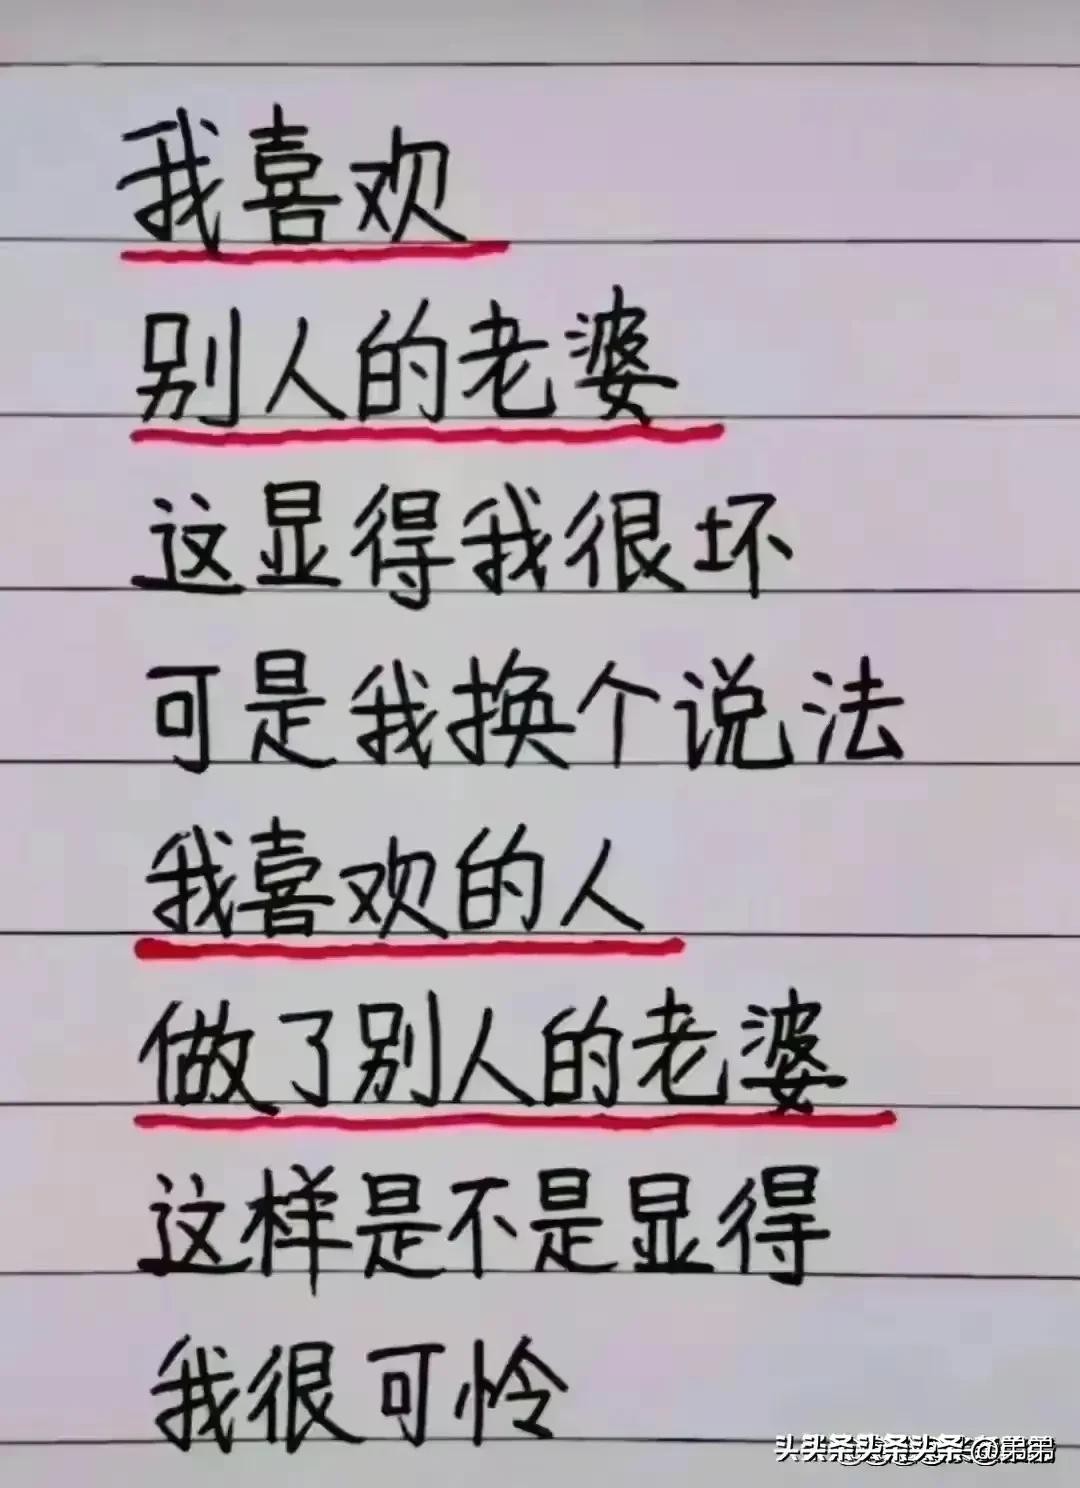 我喜欢
别人的老婆
这显得我很坏
可是我换个说法
我喜欢的人
做了别人的老婆
这样是不是显得
我很可怜